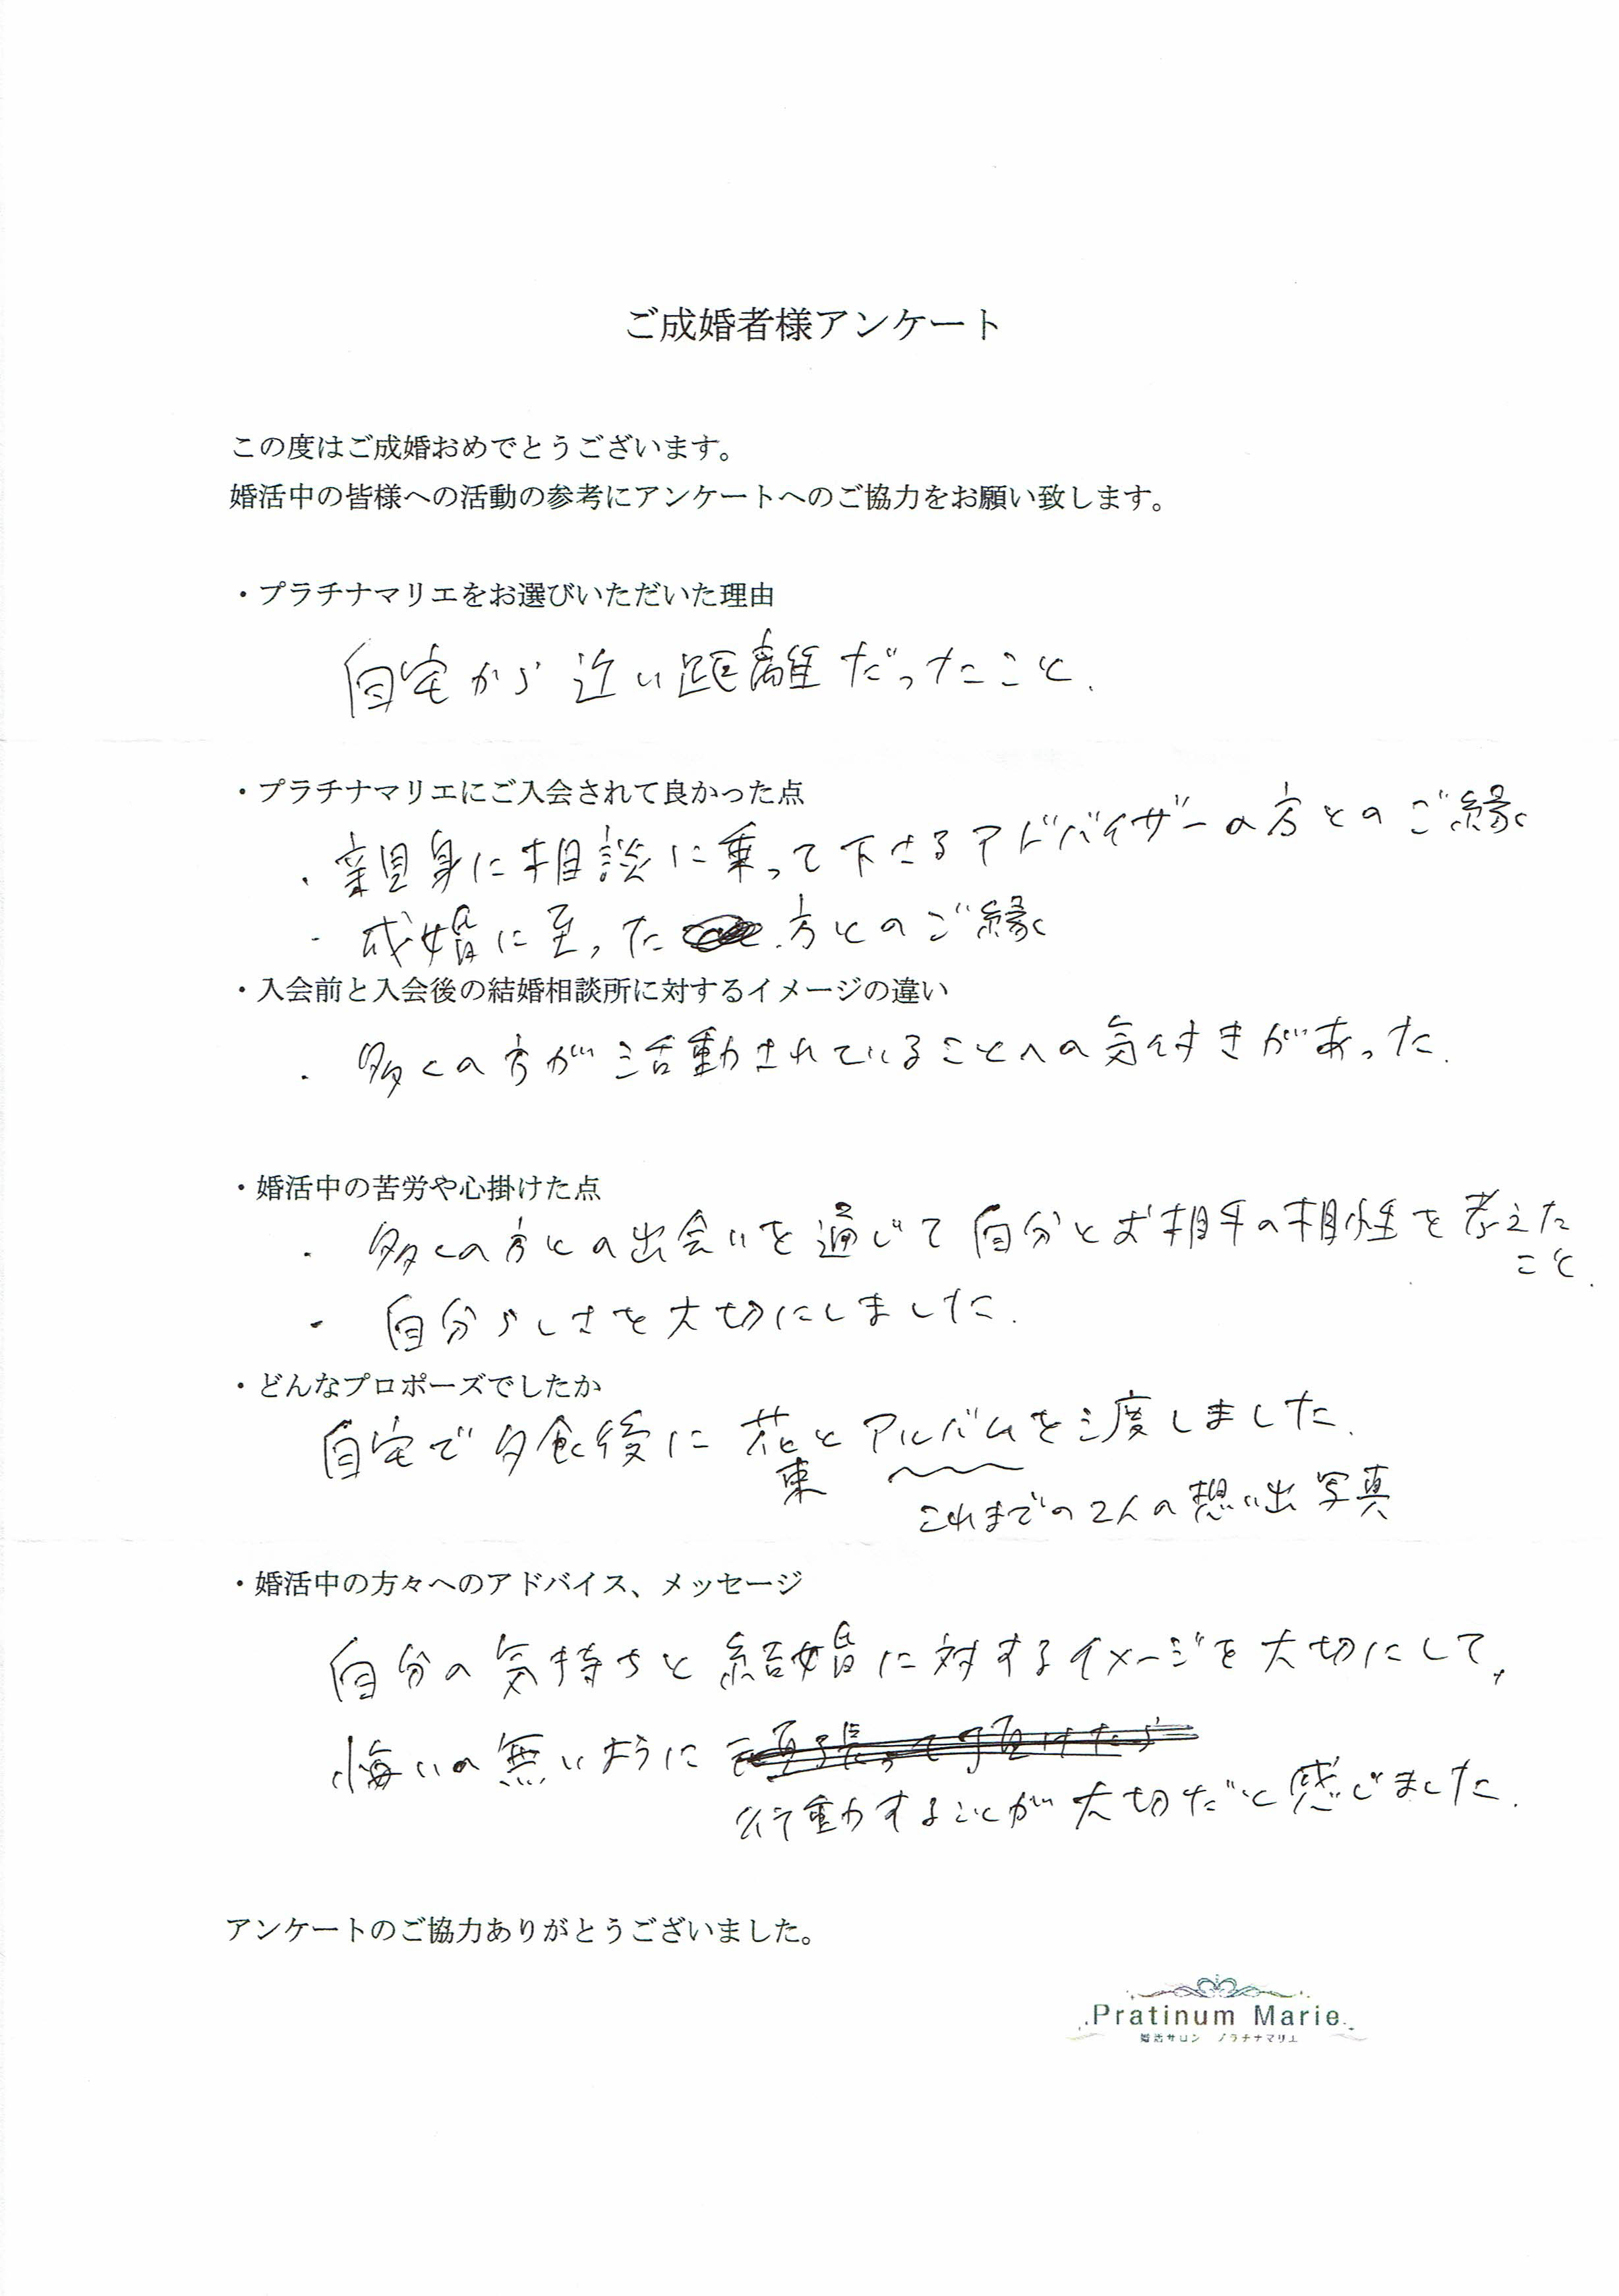 ご成婚者様アンケート
この度はご成婚おめでとうございます。
婚活中の皆様への活動の参考にアンケートへのご協力をお願い致します。
・プラチナマリエをお選びいただいた理由
自宅から近い距離だったこと.
・プラチナマリエにご入会されて良かった点
・親身に相談に乗って下さるアドバイザーの方とのご縁
・成婚に至った方とのご縁
・入会前と入会後の結婚相談所に対するイメージの違い
・多くの方が活動されていることへの気付きがあった.
・婚活中の苦労や心掛けた点
・多くの方との出会いを通じて自分とお相手の相性を考えた
こと.
・自分らしさを大切にしました.
・どんなプロポーズでしたか
自宅で夕食後に花とアルバムを渡しました.
束
これまでの2人の想い出写真
・婚活中の方々へのアドバイス、メッセージ
自分の気持ちと結婚に対するイメージを大切にして,
悔いの無いように
行動することが大切だと感じました.
アンケートのご協力ありがとうございました。
Pratinum Marie
婚活サロン プラチナマリエ